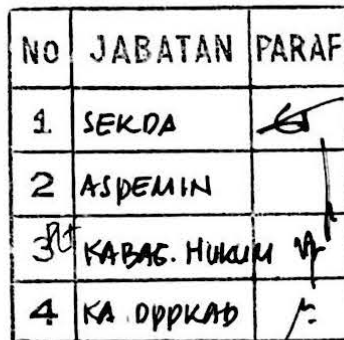 NO JABATAN PARAF
1. SEKDA
2 ASPEMIN
3 KABAG. HUKUM
4 KA. DPPKAD